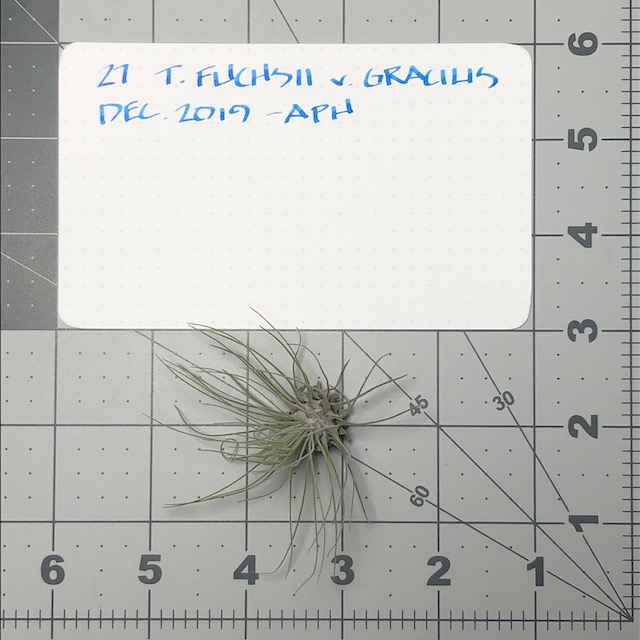 27 T. FUCHSII v. GRACILIS
DEC. 2019 -APH
6
5
4
3
2
1
45
30
60
6 5 4 3 2 1